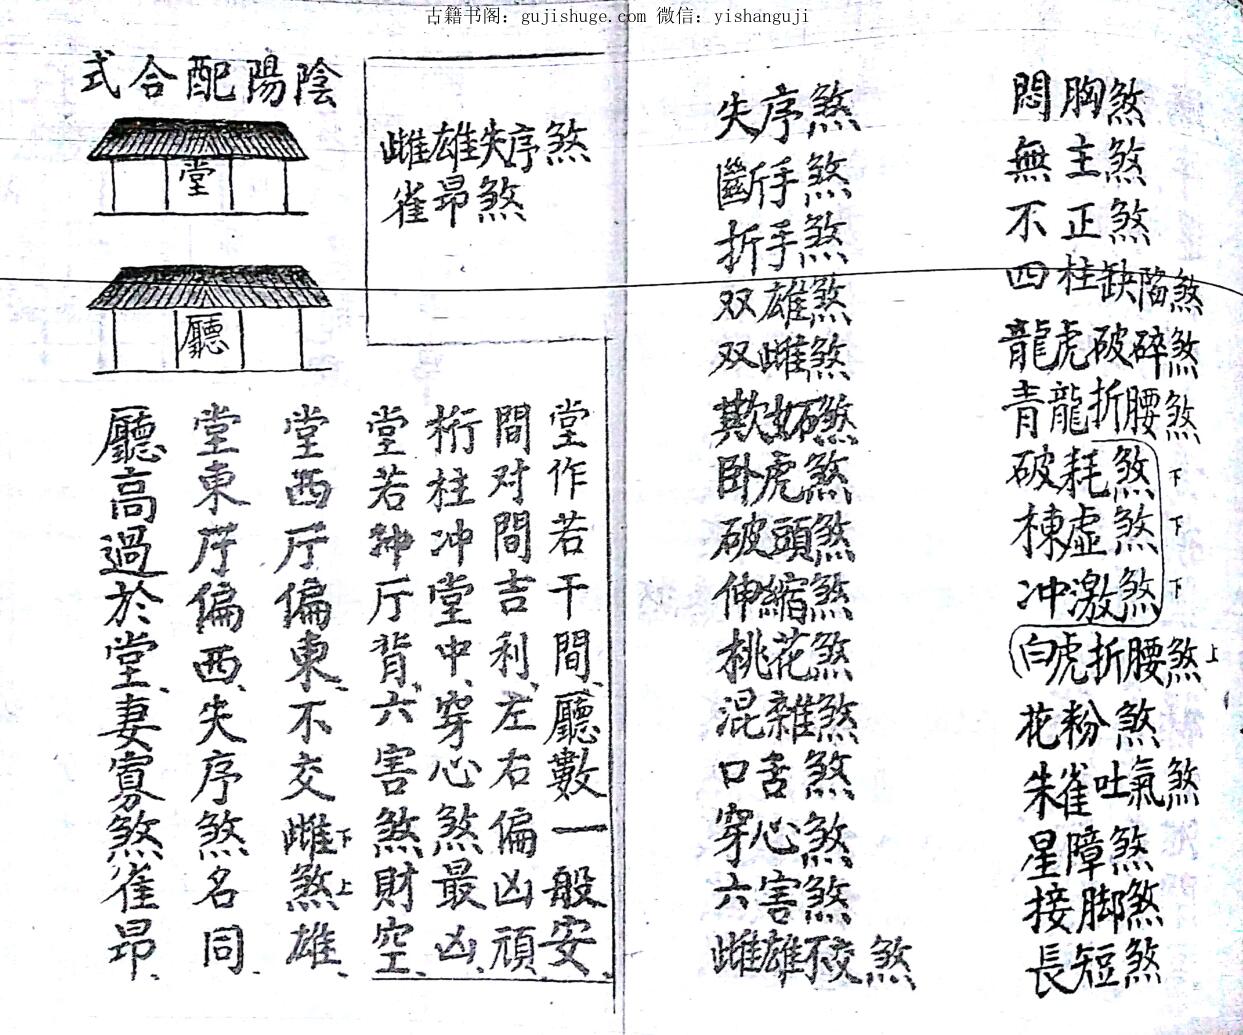 古籍书阁: gujishuge.com 微信: yishanguji
悶胸煞
無主煞
不正煞
四柱缺陷煞
龍虎破碎煞
青龍折腰煞
破耗煞 下
棟虛煞 下
冲激煞 下
白虎折腰煞 上
花粉煞
朱雀吐氣煞
星障煞
接脚煞
長短煞
失序煞
斷手煞
折手煞
双雄煞
双雌煞
欺妬煞
卧虎煞
破頭煞
伸縮煞
桃花煞
混雜煞
口舌煞
穿心煞
六害煞
雌雄不交煞
雌雄失序煞
雀昂煞
陰陽配合式
堂
廳
堂作若干間、廳數一般安、
間对間吉利、左右偏凶頑、
桁柱冲堂中、穿心煞最凶、
堂若神厅背、六害煞財空、
堂西厅偏東、不交雌下煞上雄、
堂東厅偏西、失序煞名同、
廳高過於堂、妻寡煞雀昂、